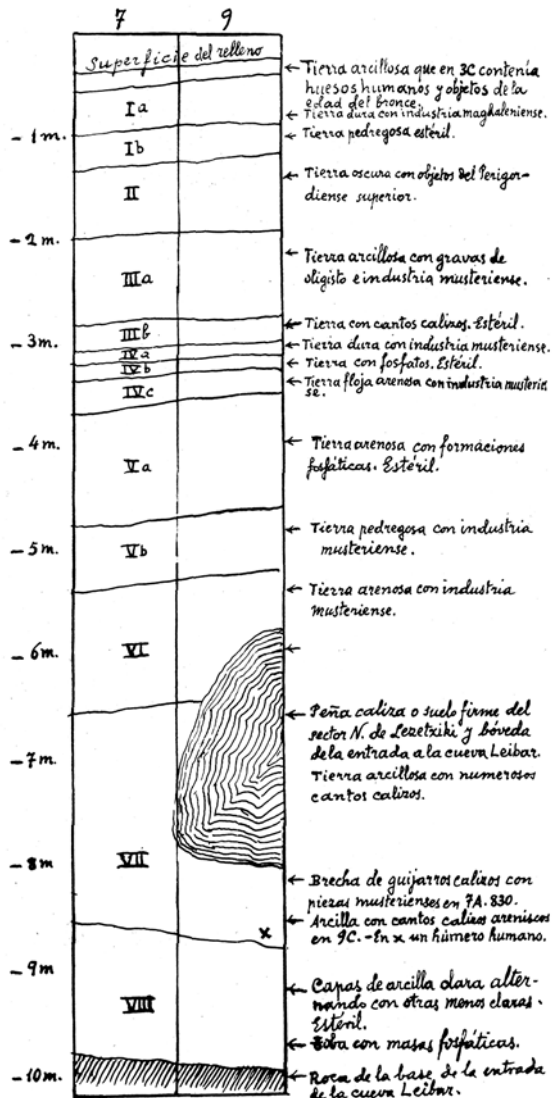 7 9
Superficie del relleno
Ia
Ib
II
IIIa
IIIb
IVa
IVb
IVc
Va
Vb
VI
VII
x
VIII
- 1 m.
- 2 m.
- 3 m.
- 4 m.
- 5 m.
- 6 m.
- 7 m.
- 8 m.
- 9 m.
- 10 m.
Tierra arcillosa que en 3C contenía
huesos humanos y objetos de la
edad del bronce.
Tierra dura con industria maghaleniense.
Tierra pedregosa estéril.
Tierra oscura con objetos del Perigor-
diense superior.
Tierra arcillosa con gravas de
oligisto e industria musteriense.
Tierra con cantos calizos. Estéril.
Tierra dura con industria musteriense.
Tierra con fosfatos. Estéril.
Tierra floja arenosa con industria musterien
se.
Tierra arenosa con formaciones
fosfáticas. Estéril.
Tierra pedregosa con industria
musteriense.
Tierra arenosa con industria
musteriense.
Peña caliza o suelo firme del
sector N. de Lezetxiki y bóveda
de la entrada a la cueva Leibar.
Tierra arcillosa con numerosos
cantos calizos.
Brecha de guijarros calizos con
piezas musterienses en 7A. 830.
Arcilla con cantos calizos areniscos
en 9C. - En x un húmero humano.
Capas de arcilla clara alter-
nando con otras menos claras.
Estéril.
Toba con masas fosfáticas.
Roca de la base de la entrada
de la cueva Leibar.